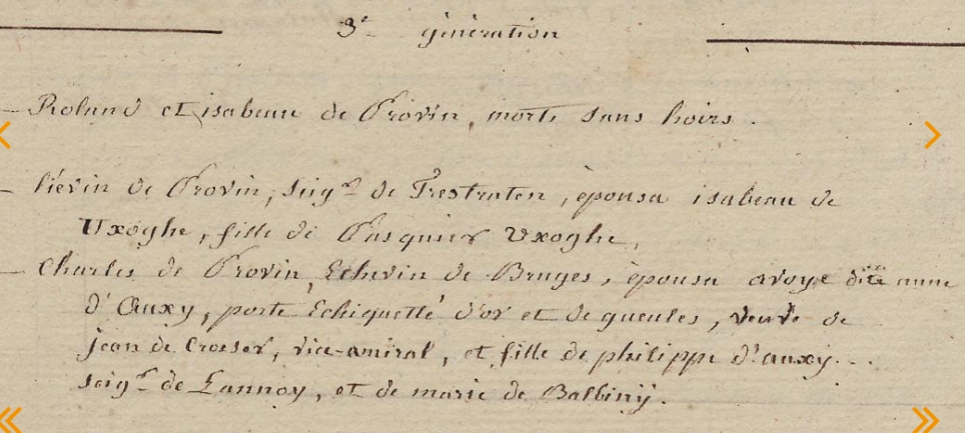 3e génération
— Roland et isabeau de Provin, morts sans hoirs.
— liévin de Provin, seigr de Trestraten, épousa isabeau de
Uxoghe, fille de Pasquier Uxoghe,
— Charles de Provin, Echevin de Bruges, épousa avoye dite anne
d'Auxy, porte Echiquetté d'or et de gueules, veuve de
jean de Croeser, vice-amiral, et fille de philippe d'auxy...
seigr de Lannoy, et de marie de Balbiny.